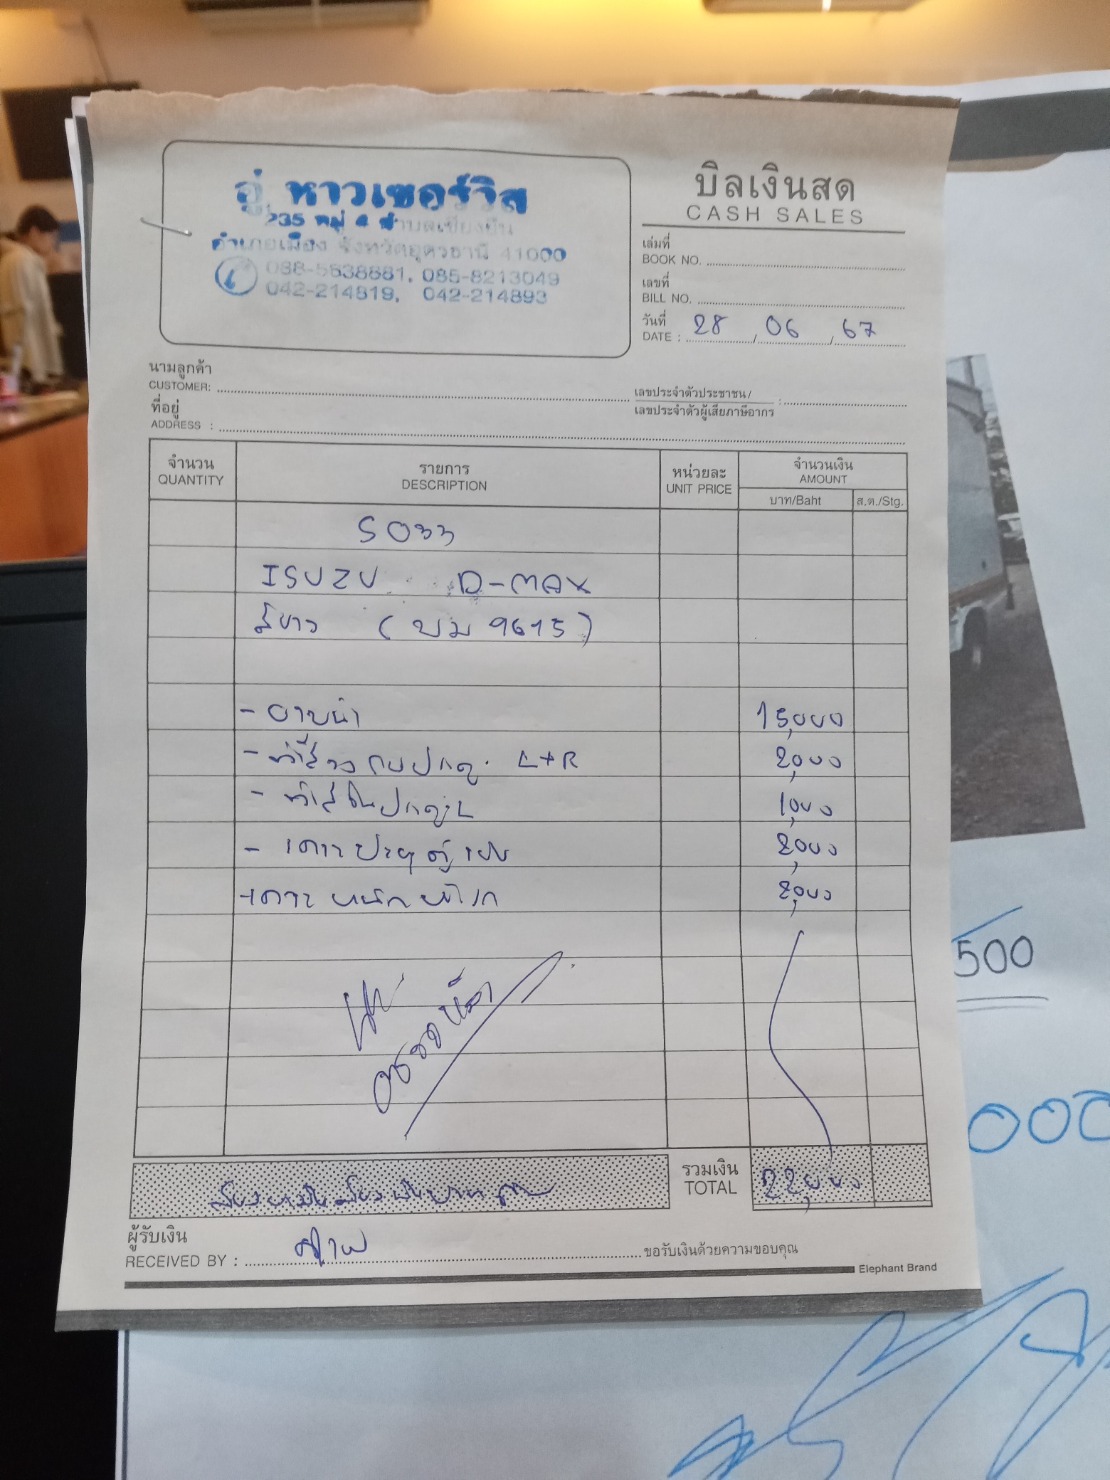 อู่ หาวเซอร์วิส
235 หมู่ 4 ตำบลเชียงยืน
อำเภอเมือง จังหวัดอุดรธานี 41000
088-5638881, 085-8213049
042-214819, 042-214893
บิลเงินสด
CASH SALES
เล่มที่
BOOK NO.
เลขที่
BILL NO.
วันที่
DATE : 28 / 06 / 67
นามลูกค้า
CUSTOMER:
เลขประจำตัวประชาชน/
เลขประจำตัวผู้เสียภาษีอากร :
ที่อยู่
ADDRESS :
จำนวน
QUANTITY
รายการ
DESCRIPTION
หน่วยละ
UNIT PRICE
จำนวนเงิน
AMOUNT
บาท/Baht
ส.ต./Stg.
5033
ISUZU D-MAX
สีขาว (บม 9615)
- อาบน้ำ 15,000
- L+R 2,000
- 1,000
- เคาะ 2,000
- เคาะ 2,000
รวมเงิน
TOTAL 22,000
ผู้รับเงิน
RECEIVED BY :
ขอรับเงินด้วยความขอบคุณ
Elephant Brand
500
000